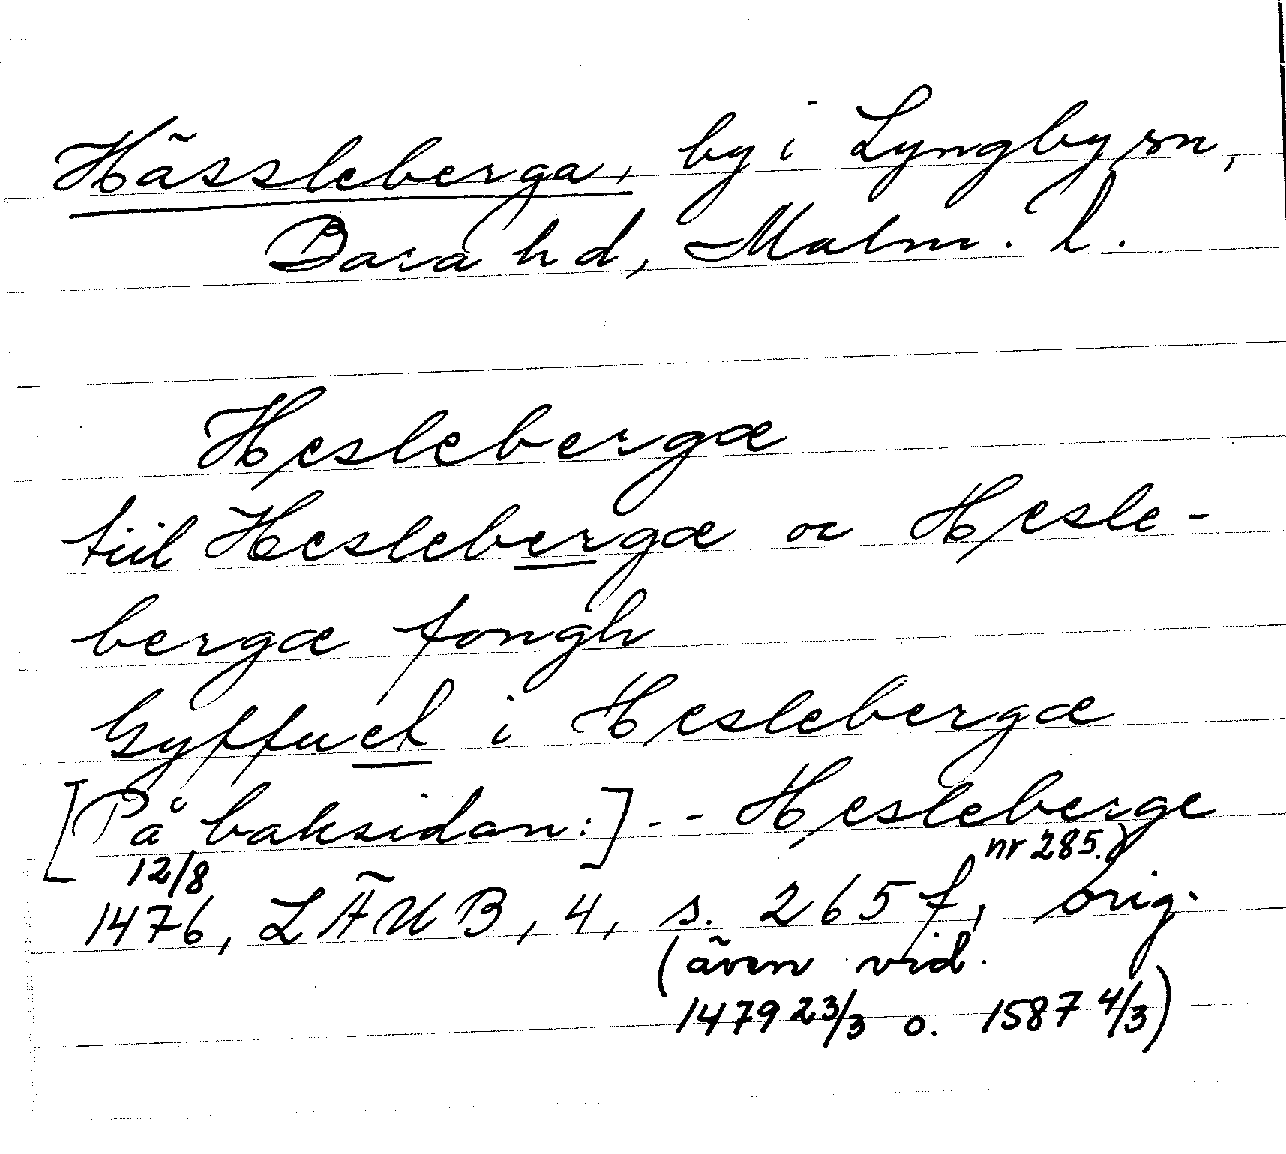 Hässleberga, by i Lyngby sn,
Bara hd, Malm. l.
Heslebergæ
tiil Heslebergæ oc Hesle-
bergæ fongh
Gyffuet i Heslebergæ
[På baksidan:] -- Hesleberge
nr 285.)
12/8
1476, LÄUB, 4, s. 265 f, orig.
(även vid.
1479 23/3 o. 1587 4/3)